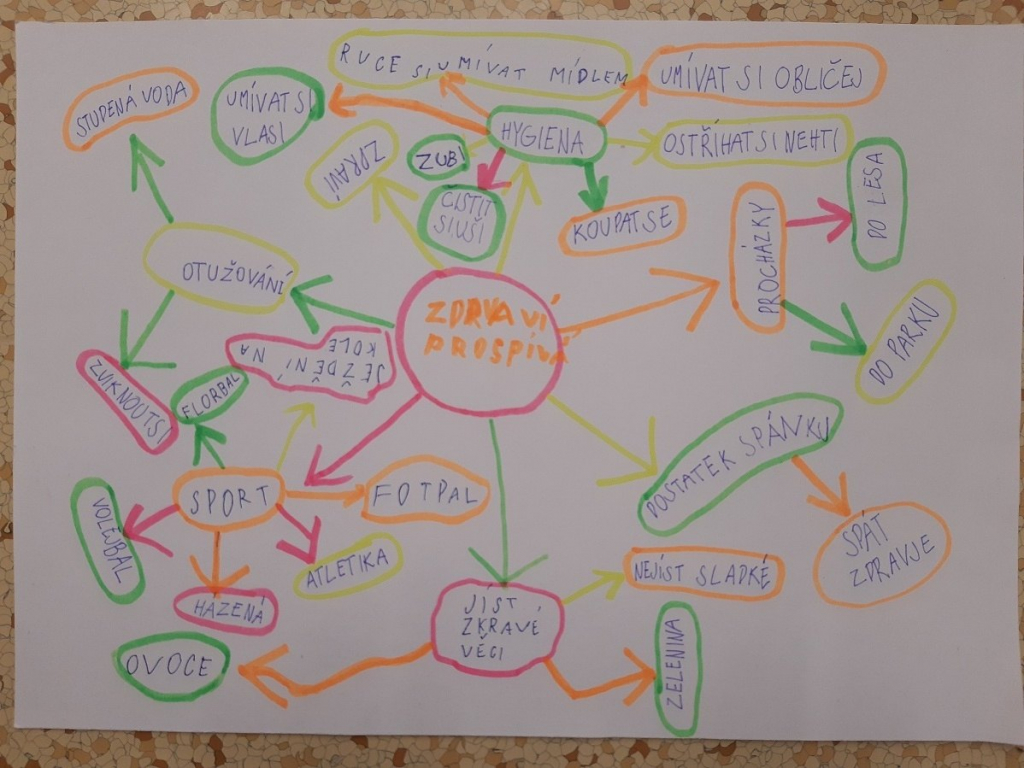 RUCE SI UMÍVAT MÍDLEM
UMÍVAT SI OBLIČEJ
STUDENÁ VODA
UMÍVAT SI
VLASI
HYGIENA
OSTŘÍHAT SI NEHTI
ZPRAVÍ
ZUBÍ
ČISTIT
SI UŠI
KOUPAT SE
PROCHÁZKY
DO LESA
OTUŽOVÁNÍ
ZDRVAVÍ
PROSPÍVÁ
DO PARKU
JEŽDĚNÍ NA
KOLE
ZVIKNOUT SI
FLORBAL
POSTATEK SPÁNKU
SPORT
FOTPAL
VOLEJBAL
ATLETIKA
SPÁT
ZDRAVJE
HAZENÁ
JÍST
ZKRAVÉ
VĚCI
NEJÍST SLADKÉ
OVOCE
ZELENINA